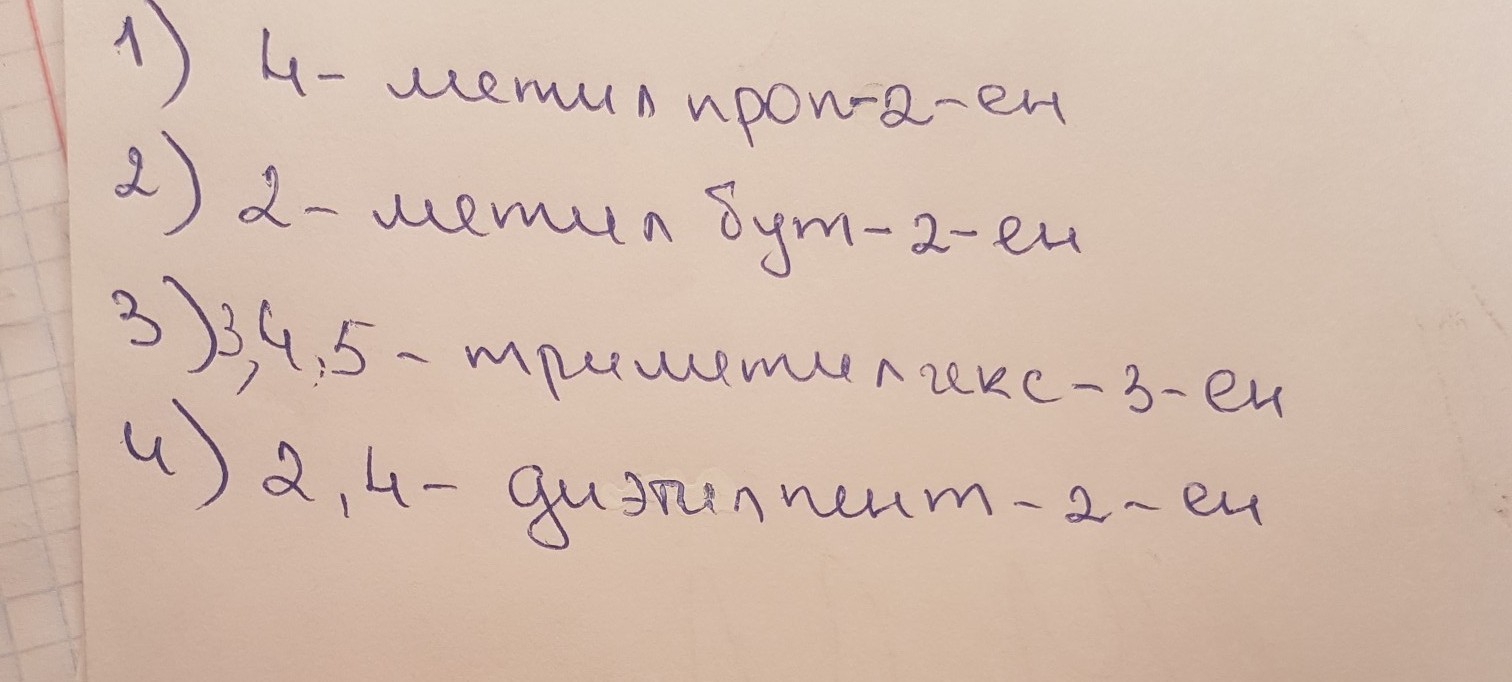 1) 4-метилпроп-2-ен
2) 2-метил бут-2-ен
3) 3,4,5-триметилгекс-3-ен
4) 2,4-диэтилпент-2-ен